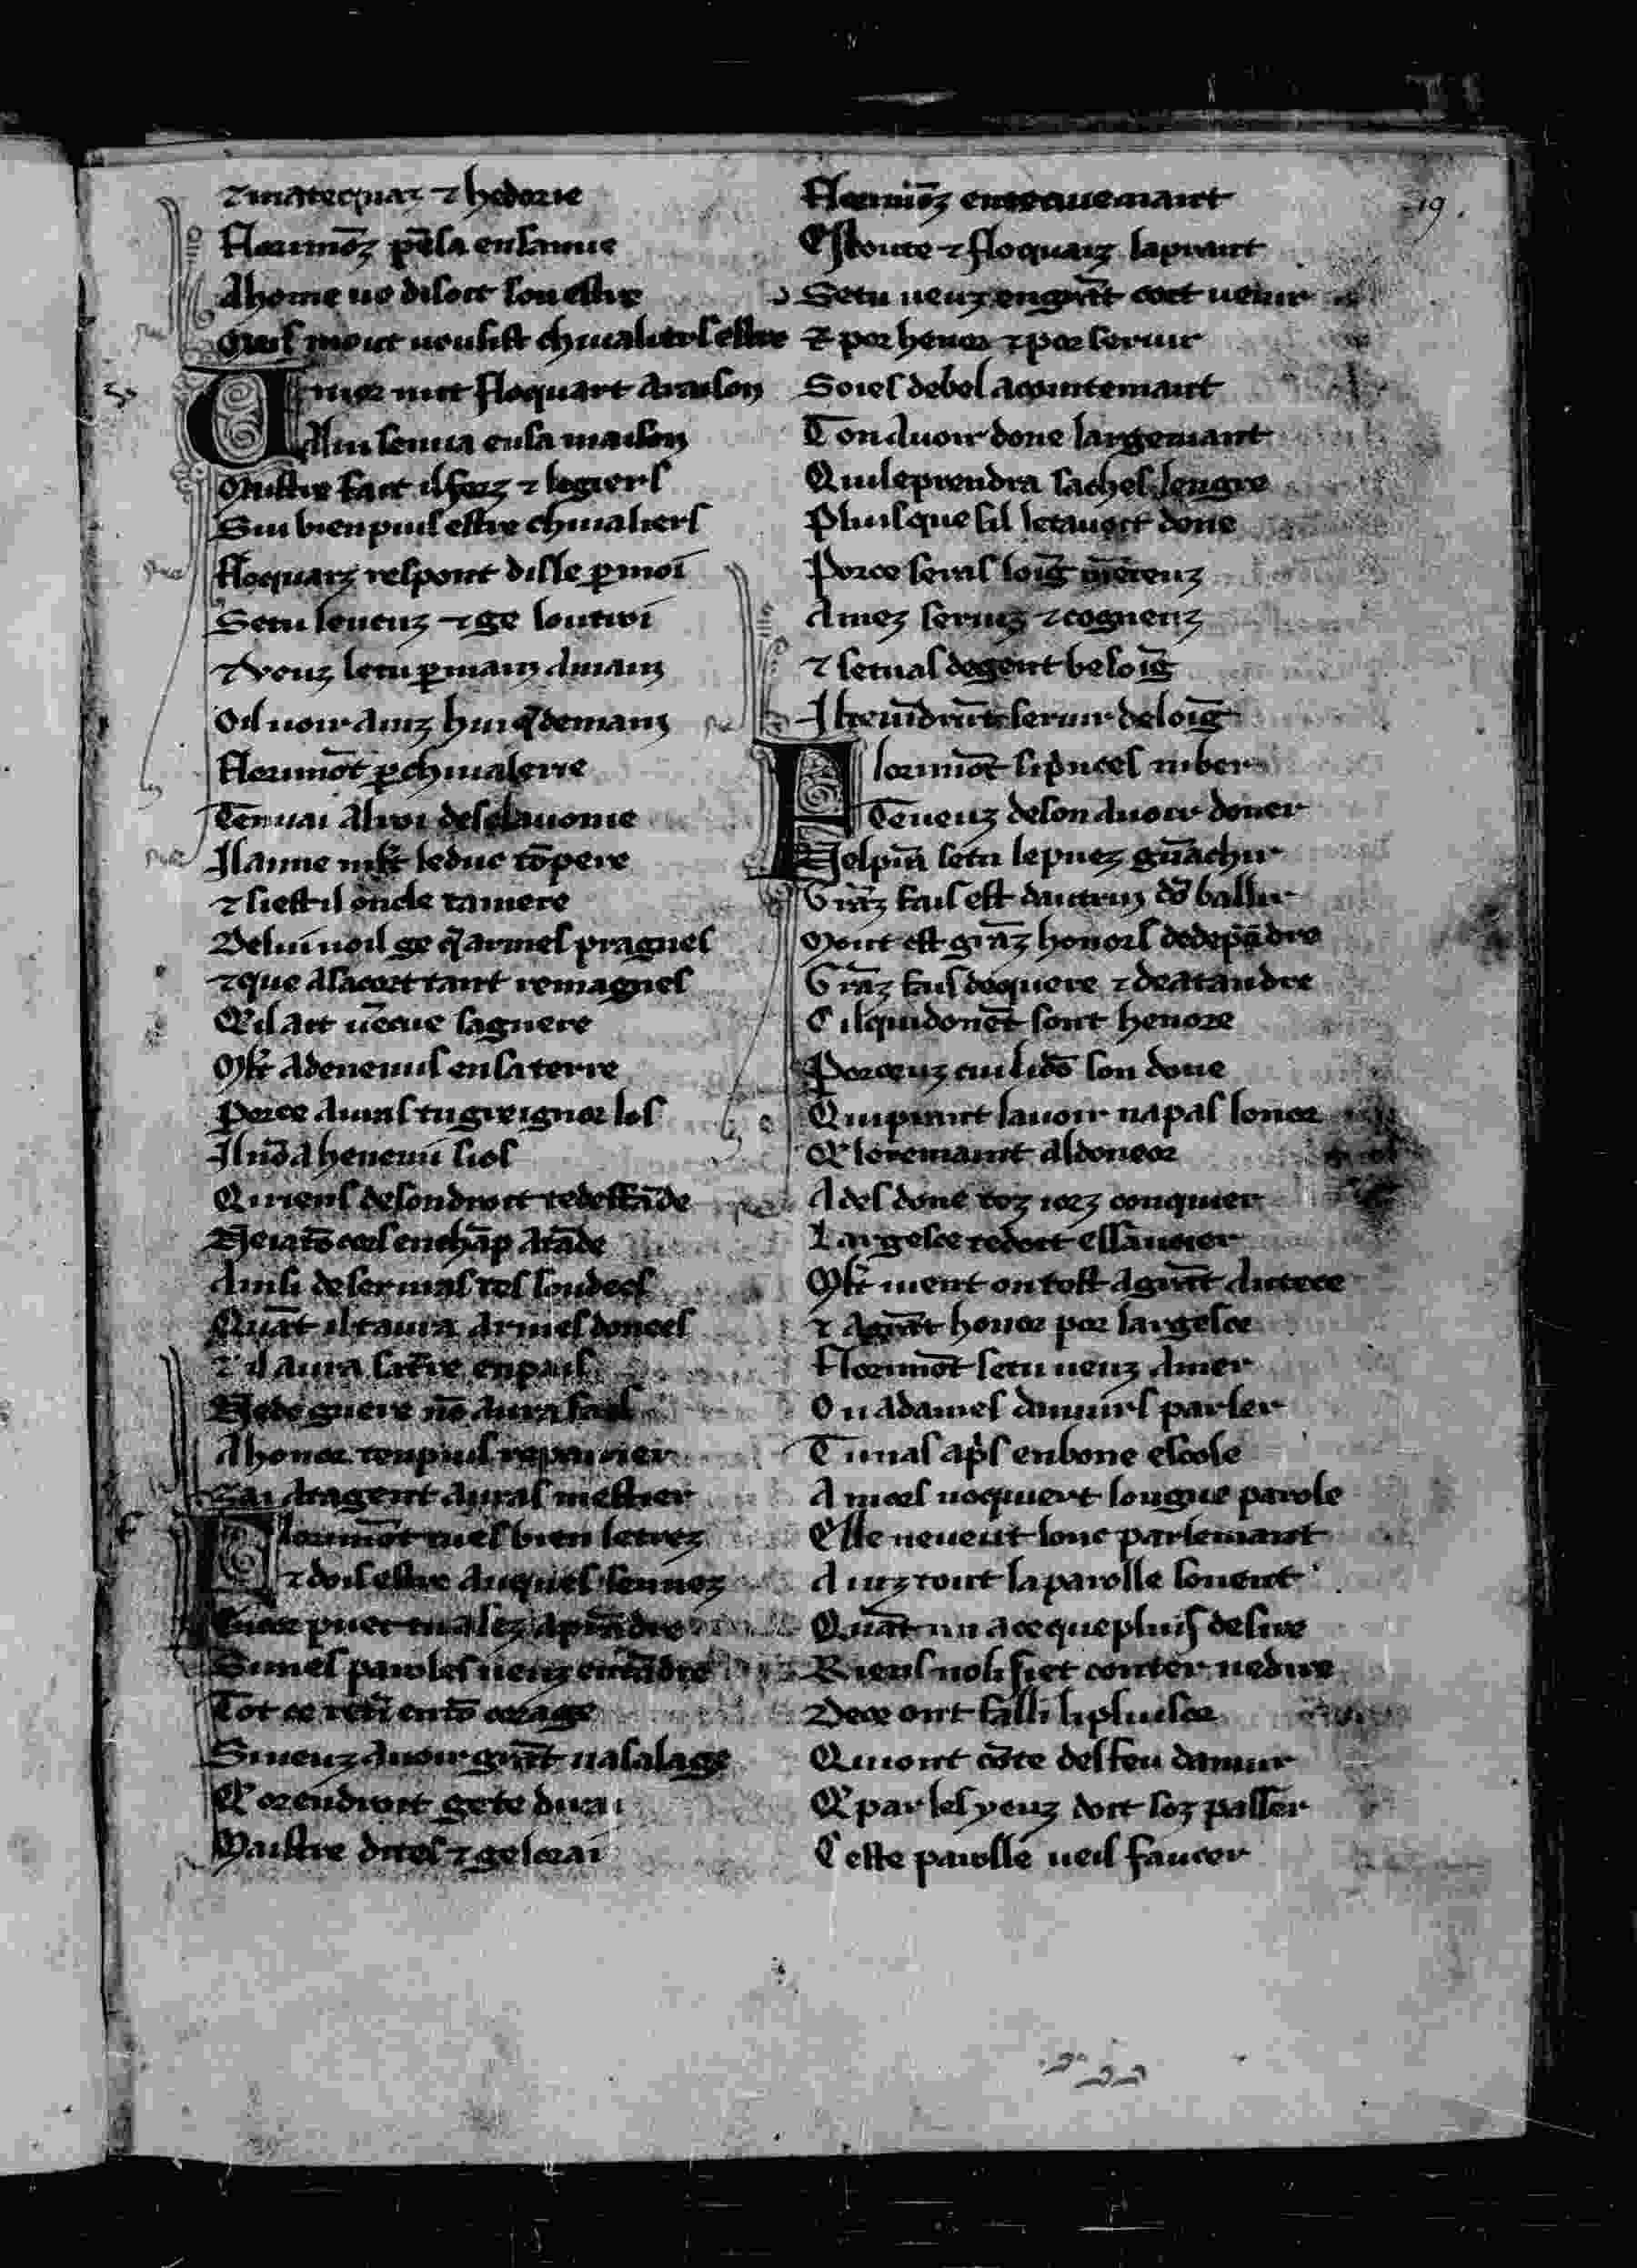 19.
⁊ matequaz ⁊ hedorie
Florimōz pēsa en sa uie
A home ne disoit son estre
Ques mout uousist cheualiers estre
A mor mit floquart a raison
A lui senua en sa maison
Maistre fait il forz ⁊ legiers
Sui bien puis estre chiualiers
Floquarz respont dis le ꝑ moi
Se tu le ueuz ⁊ ge loutroi
⁊ veuz le tu ꝑ main a main
Oil uoir ainz hui q̄ demain
Florimōt ꝑ chiualerie
Ten uai al roi desclauonie
Il aime mlt le duc tō pere
⁊ si est il oncle ta mere
De lui uoil ge q̄ armes pragnes
⁊ que a sa cort tant remagnes
Qil ait uēcue sa guere
Mlt a denemis en sa terre
Por ce auras tu greignor los
Il nō a henemi si os
Qi riens de son droit te destāde
Ne ia tō cors en chāp atāde
Ainsi de ser mas tes soudees
Quāt il taura armes donees
⁊ il aura sa tr̄re en pais
Ne de guere nō aura fais
A honor ten puis repairier
Ja a tagent auras mestier
Florimōt tu es bien letrez
⁊ dois estre auques sennez
Encor puet tu alez aprādre
Si mes paroles ueuz entādre
Tot ce retiē en tō corage
Si ueuz auoir grāt uasalage
Qorendroit ge te dirai
Maistre dites ⁊ ge lorai
Florimōz entēduemant
Escoute ⁊ floquarz laprant
Se tu ueuz en grāt cort uenir
⁊ por henor ⁊ por seruir
Soies de bel acointemant
Ton auoir done largemant
Qui le prendra saches len gre
Pluis que sil letauoit done
Por ce seras loīg mēteuz
Amez seruiz ⁊ cogneuz
⁊ se tu as de gent besoīg
Il te uiēdrūt seruir de loīg
Florimōt li princes ni ber
Te ueuz de son auoir doner
Nel prā se tu le puez guāchir
Grāz fais est dautrui dō baillir
Mout est grāz honors de depādre
Grāz fais de quere ⁊ de atandre
Cil qui donēt sont henore
Por ceuz cui li dō son done
Qui prant lauoir na pas lonor
Q lo remaint al doneor
Ades done toz iorz conquier
Largesce te doit essaucier
Mlt uient on tost a grāt autece
⁊ a grāt honor por largesce
Florimōt se tu ueuz amer
Ou a dames damurs parler
Tu uas ap̄s en bone escole
Amors no quiert longue parole
Elle ne ueut lonc parlemant
Ainz tout la parolle souent
Quāt nu a ce que pluis desire
Riens noli siet conter ne dire
De ce ont falli li pluisor
Qui ont cōte del feu damur
Q par les yeuz doit loz passer
Ceste parolle ueil fauter